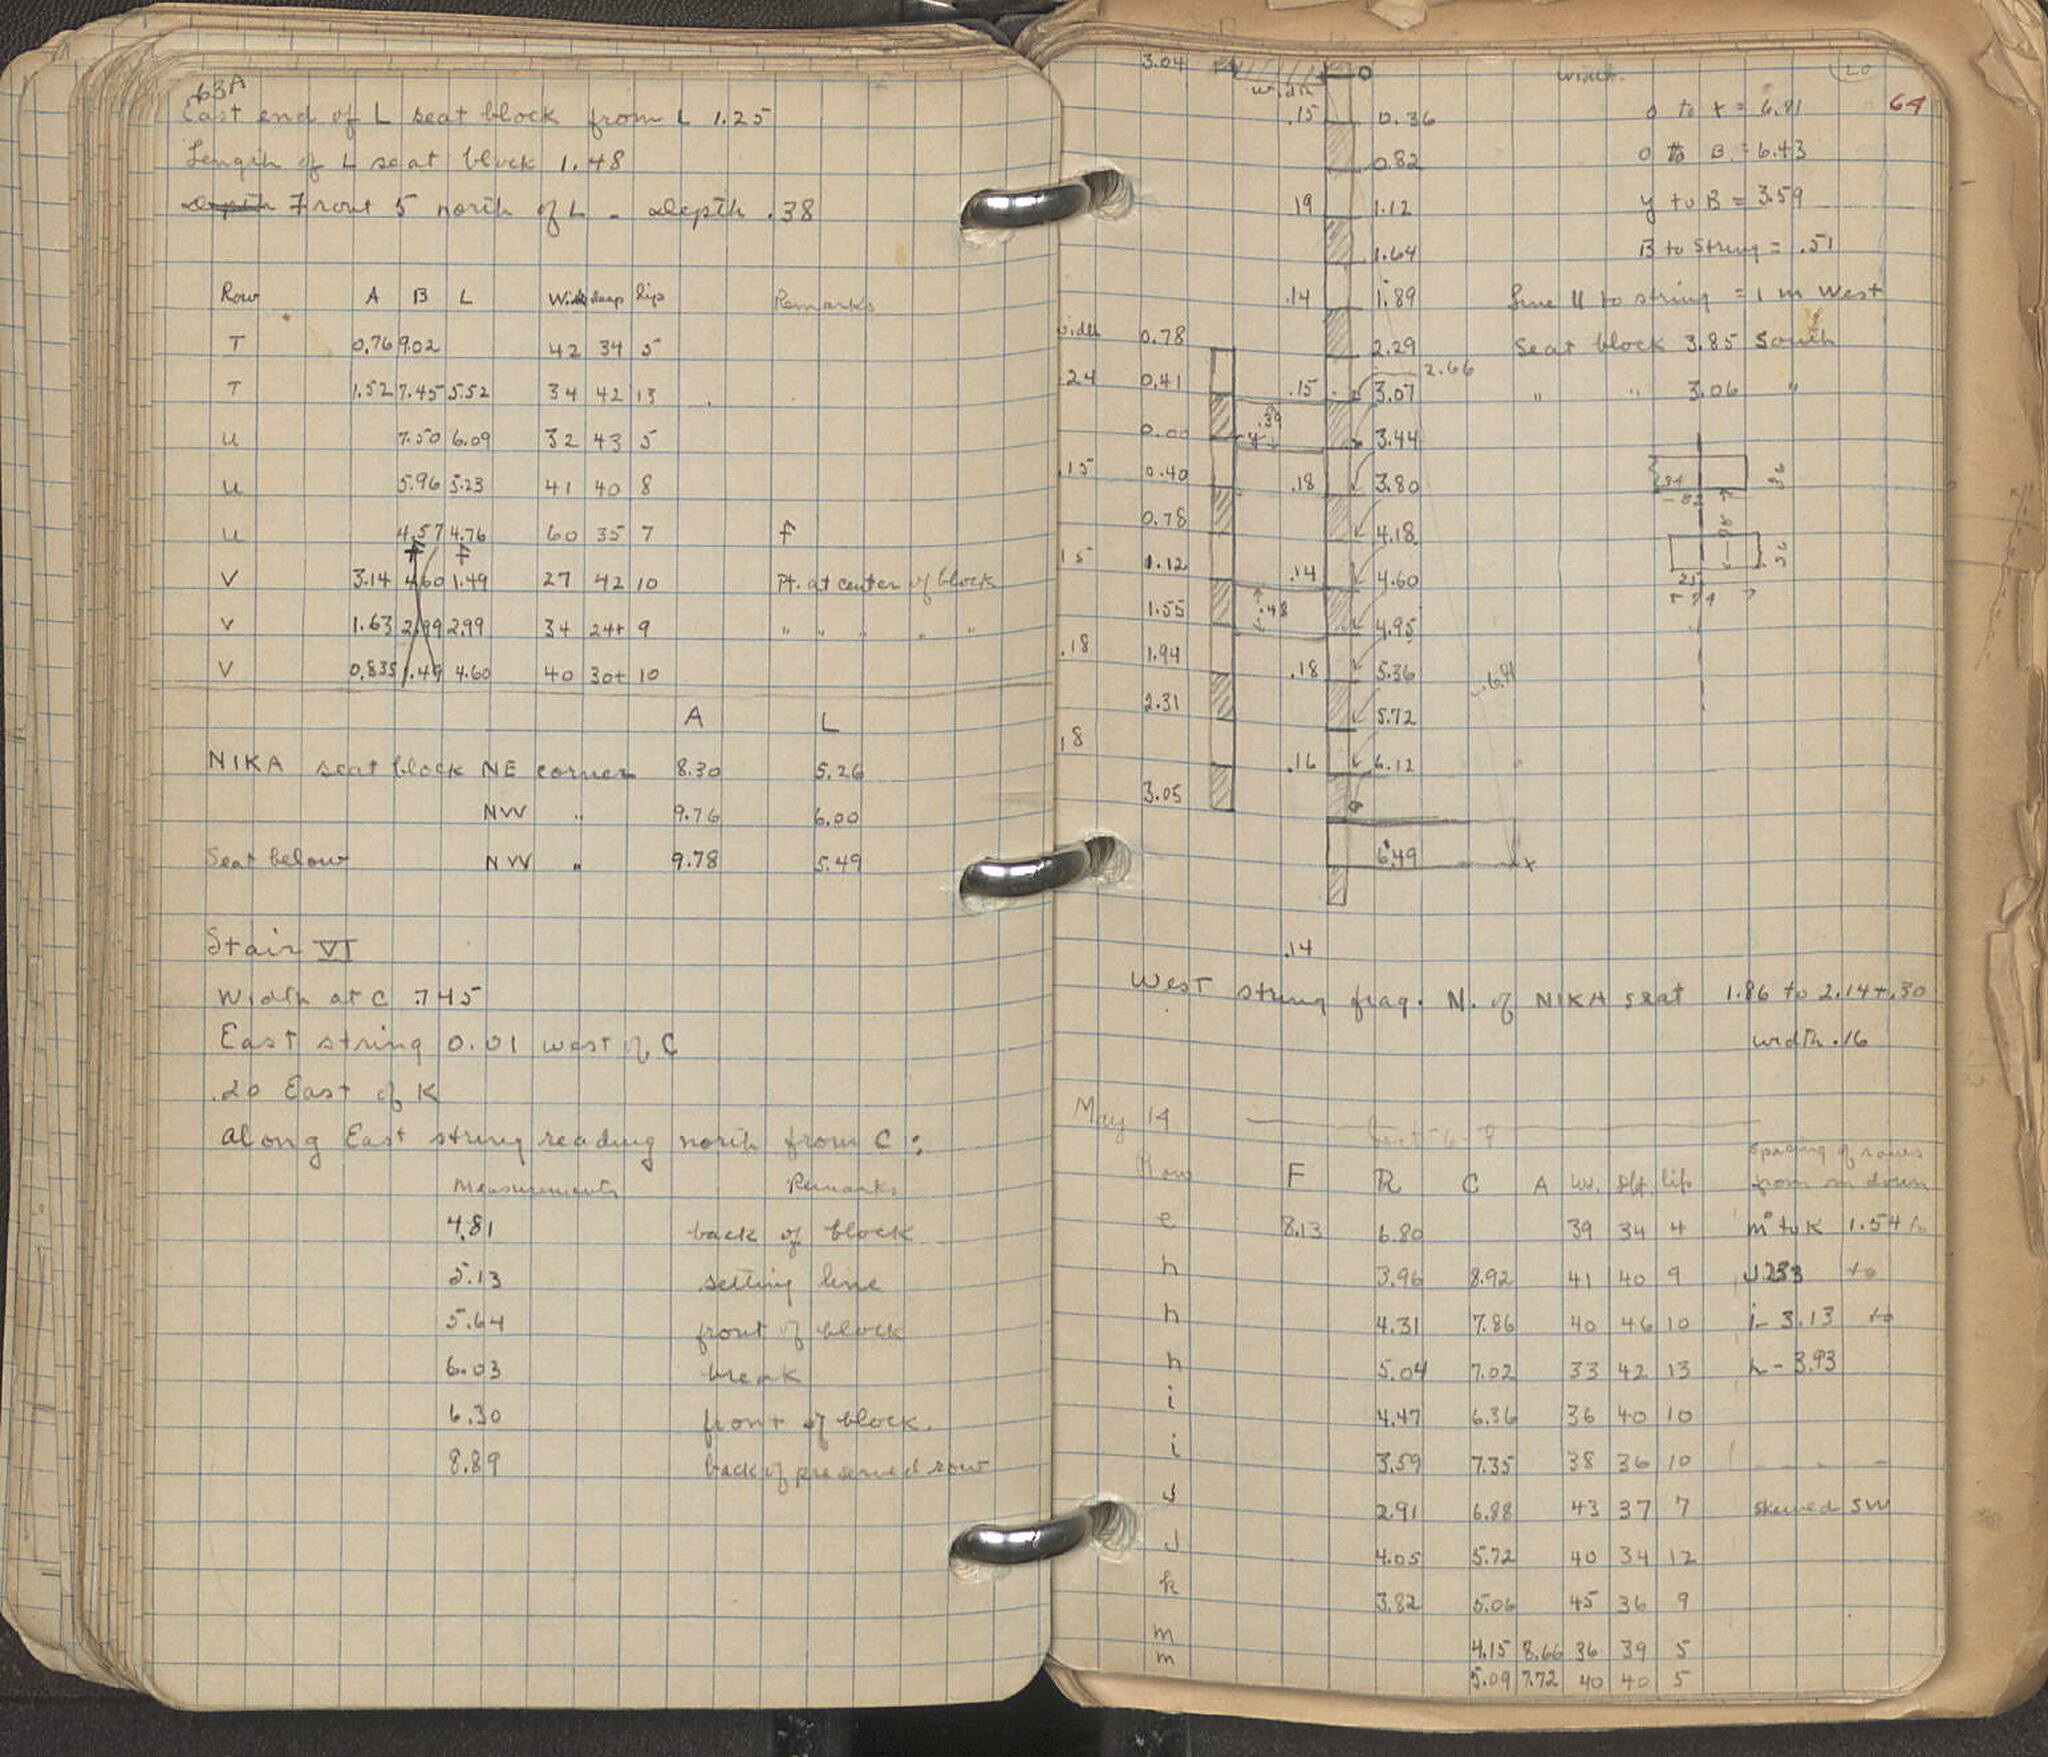 63A
East end of L seat block from L 1.25
Length of L seat block 1.48
Depth Front 5 north of L - Depth .38
Row A B L Wide deep lip Remarks
T 0.76 9.02 42 34 5
T 1.52 7.45 5.52 34 42 13
U 7.50 6.09 32 43 5
U 5.96 5.23 41 40 8
U 4.57 4.76 60 35 7 F
V 3.14 4.60 1.49 27 42 10 Pt. at center of block
V 1.63 2.99 2.99 34 24+ 9 " " " " "
V 0.835 1.49 4.60 40 30+ 10
A L
NIKA seat block NE corner 8.30 5.26
NW " 9.76 6.00
Seat below NW " 9.78 5.49
Stair VI
Width at C .745
East string 0.01 west of C
.20 East of K
Along East string reading north from C :
Measurements Remarks
4.81 back of block
5.13 setting line
5.64 front of block
6.03 break
6.30 front of block.
8.89 back of preserved row
64
3.04 O
width
.15 0.36 O to x = 6.81
0.82 O to B = 6.43
.19 1.12 y to B = 3.59
1.64 B to string = .51
.14 1.89 Line 11 to string = 1 m West
width 0.78 2.29 Seat block 3.85 South
2.66
.24 0.41 .15 3.07 " " 3.06 "
.39
0.00 y 3.44
.15 0.40 .18 3.80
0.78 4.18
.15 1.12 .14 4.60
1.55 .48 4.95
.18 1.94 .18 5.36
2.31 5.72
.18 .16 6.12
3.05
6.49 x
.14
West string frag. N. of NIKA seat 1.86 to 2.14+.30
width .16
May 14
Row F B C A wd. dpt. lip Spacing of rows from m down
e 8.13 6.80 39 34 4 m to K 1.54 to
h 3.96 8.92 41 40 9 J 2.33 to
h 4.31 7.86 40 46 10 i - 3.13 to
h 5.04 7.02 33 42 13 h - 3.93
i 4.47 6.36 36 40 10
i 3.59 7.35 38 36 10
J 2.91 6.88 43 37 7 skewed SW
J 4.05 5.72 40 34 12
k 3.82 5.06 45 36 9
m 4.15 8.66 36 39 5
m 5.09 7.72 40 40 5